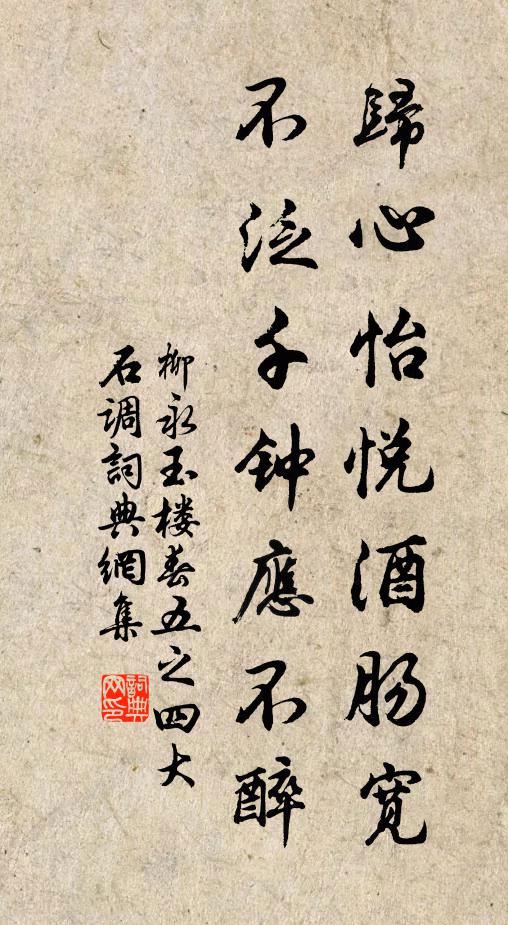 歸心怡悦酒肠寛
不泛千钟應不醉
柳永玉楼春五之四大
石調詞典網集
詞典
网印